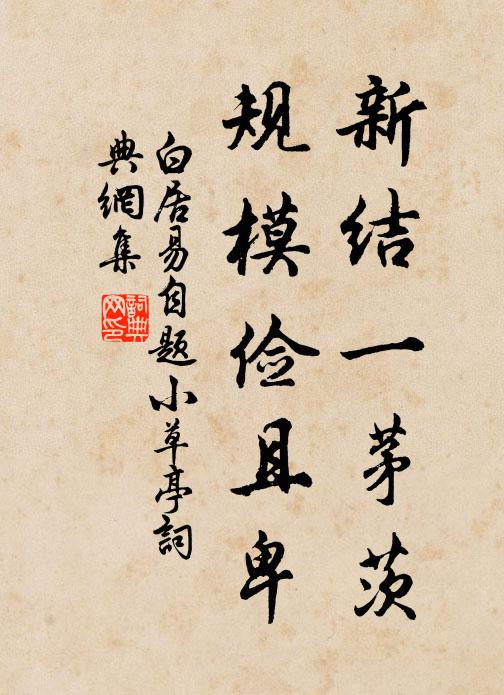 新结一茅茨
规模俭且卑
白居易自题小草亭詞
典網集
詞典
网印